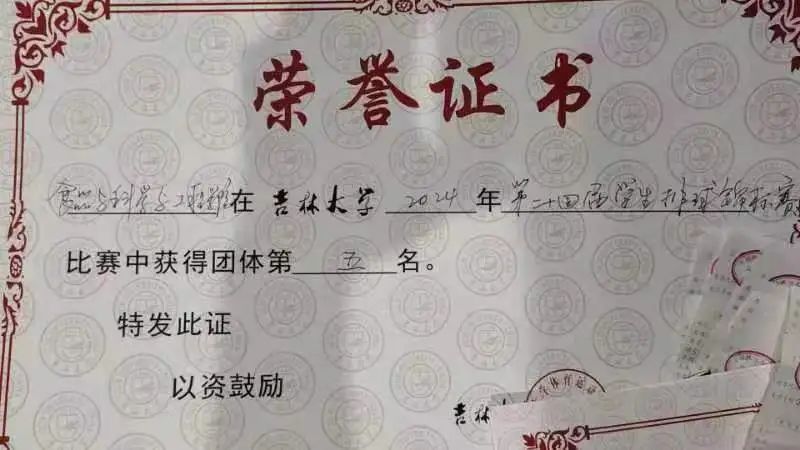 荣誉证书
食品与科学与工程学院在吉林大学2024年第二十四届学生排球锦标赛
比赛中获得团体第五名。
特发此证
以资鼓励
吉林
体育运动